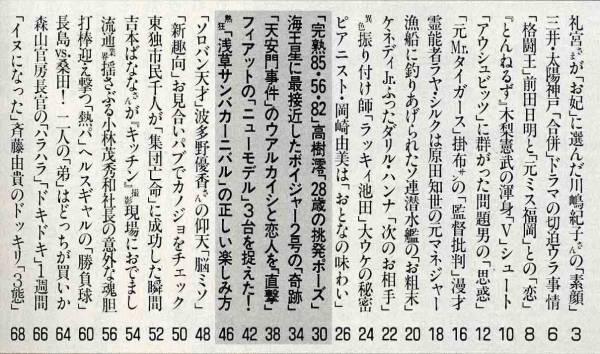 礼宮さまが「お妃」に選んだ川嶋紀子さんの「素顔」 3
三井・太陽神戸「合併」ドラマの切迫ウラ事情 6
「格闘王」前田日明と「元ミス福岡」との「恋」 8
『とんねるず』木梨憲武の渾身「V」シュート 10
「アウシュビッツ」に群がった問題男の「思惑」 12
「元Mr.タイガース」掛布サンの「監督批判」漫才 16
霊能者ラ・シルクは原田知世の元マネジャー 18
漁船に釣りあげられたソ連潜水艦の「お粗末」 20
ケネディJr.ふったダリル・ハンナ「次のお相手」 22
異色振り付け師「ラッキィ池田」大ウケの秘密 24
ピアニスト・岡崎由美は「おとなの味わい」 26
「完熟85・56・82」高樹澪「28歳の挑発ポーズ」 30
海王星に最接近したボイジャー2号の「奇跡」 34
「天安門事件」のウアルカイシと恋人を「直撃」 38
フィアットの「ニューモデル」3台を捉えた! 42
熱狂「浅草サンバカーニバル」の正しい楽しみ方 46
「ソロバン天才」波多野優香さんの仰天「脳ミソ」 48
「新趣向」お見合いパブでカノジョをチェック 50
東独市民千人が「集団亡命」に成功した瞬間 52
吉本ばななさんが『キッチン』撮影現場におでまし 54
流通業界揺さぶる小林茂秀和社長の意外な魂胆 56
打棒迎え撃つ「熱パ」ヘルスギャルの「勝負球」 60
長島vs.桑田!二人の「弟」はどっちが買いか 64
森山官房長官の「ハラハラ」「ドキドキ」1週間 66
「イヌになった」斉藤由貴のドッキリ「3態」 68